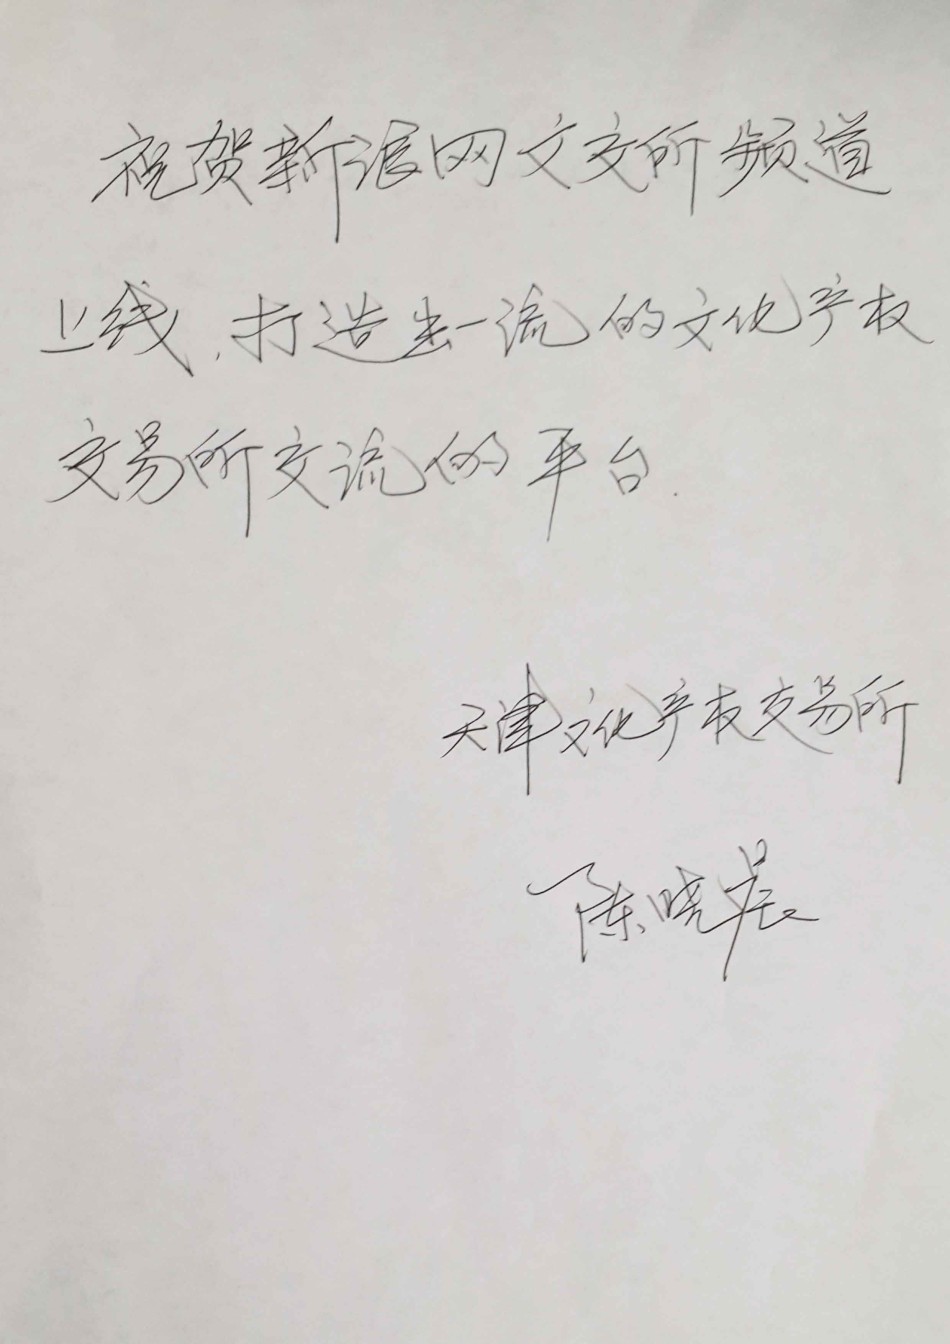 祝贺新浪网文交所频道
上线，打造出一流的文化产权
交易所交流的平台.
天津文化产权交易所
陈晓晨